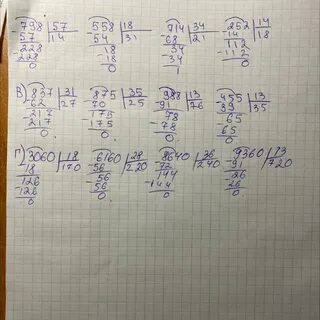 798 | 57   558 | 18   714 | 34   252 | 14
57 | 14   54 | 31   68 | 21   14 | 18
228   18   34   112
228   18   34   112
0   0   1   0
В) 837 | 31   875 | 35   988 | 13   455 | 13
62 | 27   70 | 25   91 | 76   39 | 35
217   175   78   65
217   175   78   65
0   0   0   0
Г) 3060 | 18   6160 | 28   8640 | 36   9360 | 13
18 | 170   56 | 220   72 | 240   91 | 720
126   56   144   26
126   56   144   26
0   0   0   0